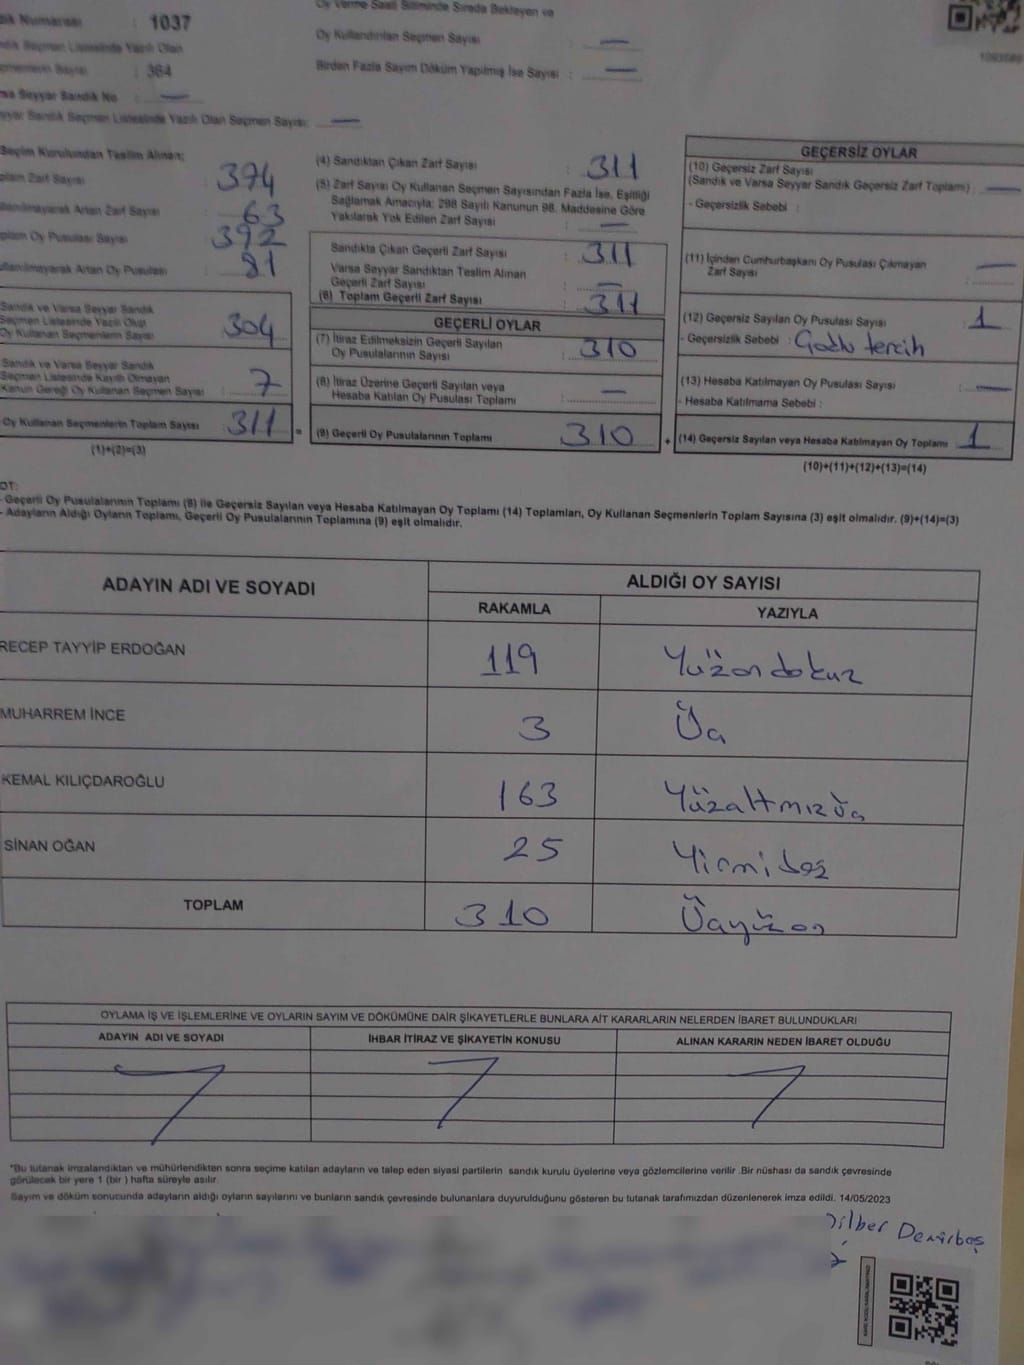 Numarası : 1037
Seçmen Listesinde Yazılı Olan
Sayısı : 364
Seyyar Sandık No : —
Sandık Seçmen Listesinde Yazılı Olan Seçmen Sayısı: —
Oy Verme Saati Bitiminde Sırada Bekleyen ve
Oy Kullandırılan Seçmen Sayısı : —
Birden Fazla Sayım Döküm Yapılmış İse Sayısı : —
Seçim Kurulundan Teslim Alınan;
Zarf Sayısı : 394
Artan Zarf Sayısı : 63
Oy Pusulası Sayısı : 392
Artan Oy Pusulası : 81
Sandık ve Varsa Seyyar Sandık
Seçmen Listesinde Yazılı Olup
Oy Kullanan Seçmenlerin Sayısı : 304
Sandık ve Varsa Seyyar Sandık
Seçmen Listesinde Kayıtlı Olmayan
Kanun Gereği Oy Kullanan Seçmen Sayısı : 7
Oy Kullanan Seçmenlerin Toplam Sayısı : 311 =
(1)+(2)=(3)
(4) Sandıktan Çıkan Zarf Sayısı : 311
(5) Zarf Sayısı Oy Kullanan Seçmen Sayısından Fazla İse, Eşitliği
Sağlamak Amacıyla; 298 Sayılı Kanunun 98. Maddesine Göre
Yakılarak Yok Edilen Zarf Sayısı : —
Sandıkta Çıkan Geçerli Zarf Sayısı : 311
Varsa Seyyar Sandıktan Teslim Alınan
Geçerli Zarf Sayısı : —
(6) Toplam Geçerli Zarf Sayısı : 311
GEÇERLİ OYLAR
(7) İtiraz Edilmeksizin Geçerli Sayılan
Oy Pusulalarının Sayısı : 310
(8) İtiraz Üzerine Geçerli Sayılan veya
Hesaba Katılan Oy Pusulası Toplamı : —
(9) Geçerli Oy Pusulalarının Toplamı : 310 +
GEÇERSİZ OYLAR
(10) Geçersiz Zarf Sayısı
(Sandık ve Varsa Seyyar Sandık Geçersiz Zarf Toplamı) : —
- Geçersizlik Sebebi :
(11) İçinden Cumhurbaşkanı Oy Pusulası Çıkmayan
Zarf Sayısı : —
(12) Geçersiz Sayılan Oy Pusulası Sayısı : 1
- Geçersizlik Sebebi : Çoklu tercih
(13) Hesaba Katılmayan Oy Pusulası Sayısı : —
- Hesaba Katılmama Sebebi :
(14) Geçersiz Sayılan veya Hesaba Katılmayan Oy Toplamı 1
(10)+(11)+(12)+(13)=(14)
- Geçerli Oy Pusulalarının Toplamı (9) ile Geçersiz Sayılan veya Hesaba Katılmayan Oy Toplamı (14) Toplamları, Oy Kullanan Seçmenlerin Toplam Sayısına (3) eşit olmalıdır. (9)+(14)=(3)
- Adayların Aldığı Oyların Toplamı, Geçerli Oy Pusulalarının Toplamına (9) eşit olmalıdır.
ADAYIN ADI VE SOYADI
ALDIĞI OY SAYISI
RAKAMLA YAZIYLA
RECEP TAYYİP ERDOĞAN 119 Yüzondokuz
MUHARREM İNCE 3 Üç
KEMAL KILIÇDAROĞLU 163 Yüzaltmışüç
SİNAN OĞAN 25 Yirmibeş
TOPLAM 310 Üçyüzon
OYLAMA İŞ VE İŞLEMLERİNE VE OYLARIN SAYIM VE DÖKÜMÜNE DAİR ŞİKAYETLERLE BUNLARA AİT KARARLARIN NELERDEN İBARET BULUNDUKLARI
ADAYIN ADI VE SOYADI İHBAR İTİRAZ VE ŞİKAYETİN KONUSU ALINAN KARARIN NEDEN İBARET OLDUĞU
*Bu tutanak imzalandıktan ve mühürlendikten sonra seçime katılan adayların ve talep eden siyasi partilerin sandık kurulu üyelerine veya gözlemcilerine verilir .Bir nüshası da sandık çevresinde
görülecek bir yere 1 (bir ) hafta süreyle asılır.
Sayım ve döküm sonucunda adayların aldığı oyların sayılarını ve bunların sandık çevresinde bulunanlara duyurulduğunu gösteren bu tutanak tarafımızdan düzenlenerek imza edildi. 14/05/2023
Dilber Demirbaş